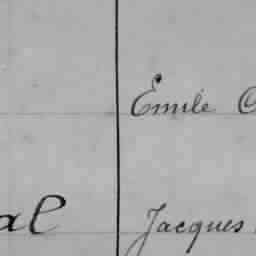 Emile
al Jacques